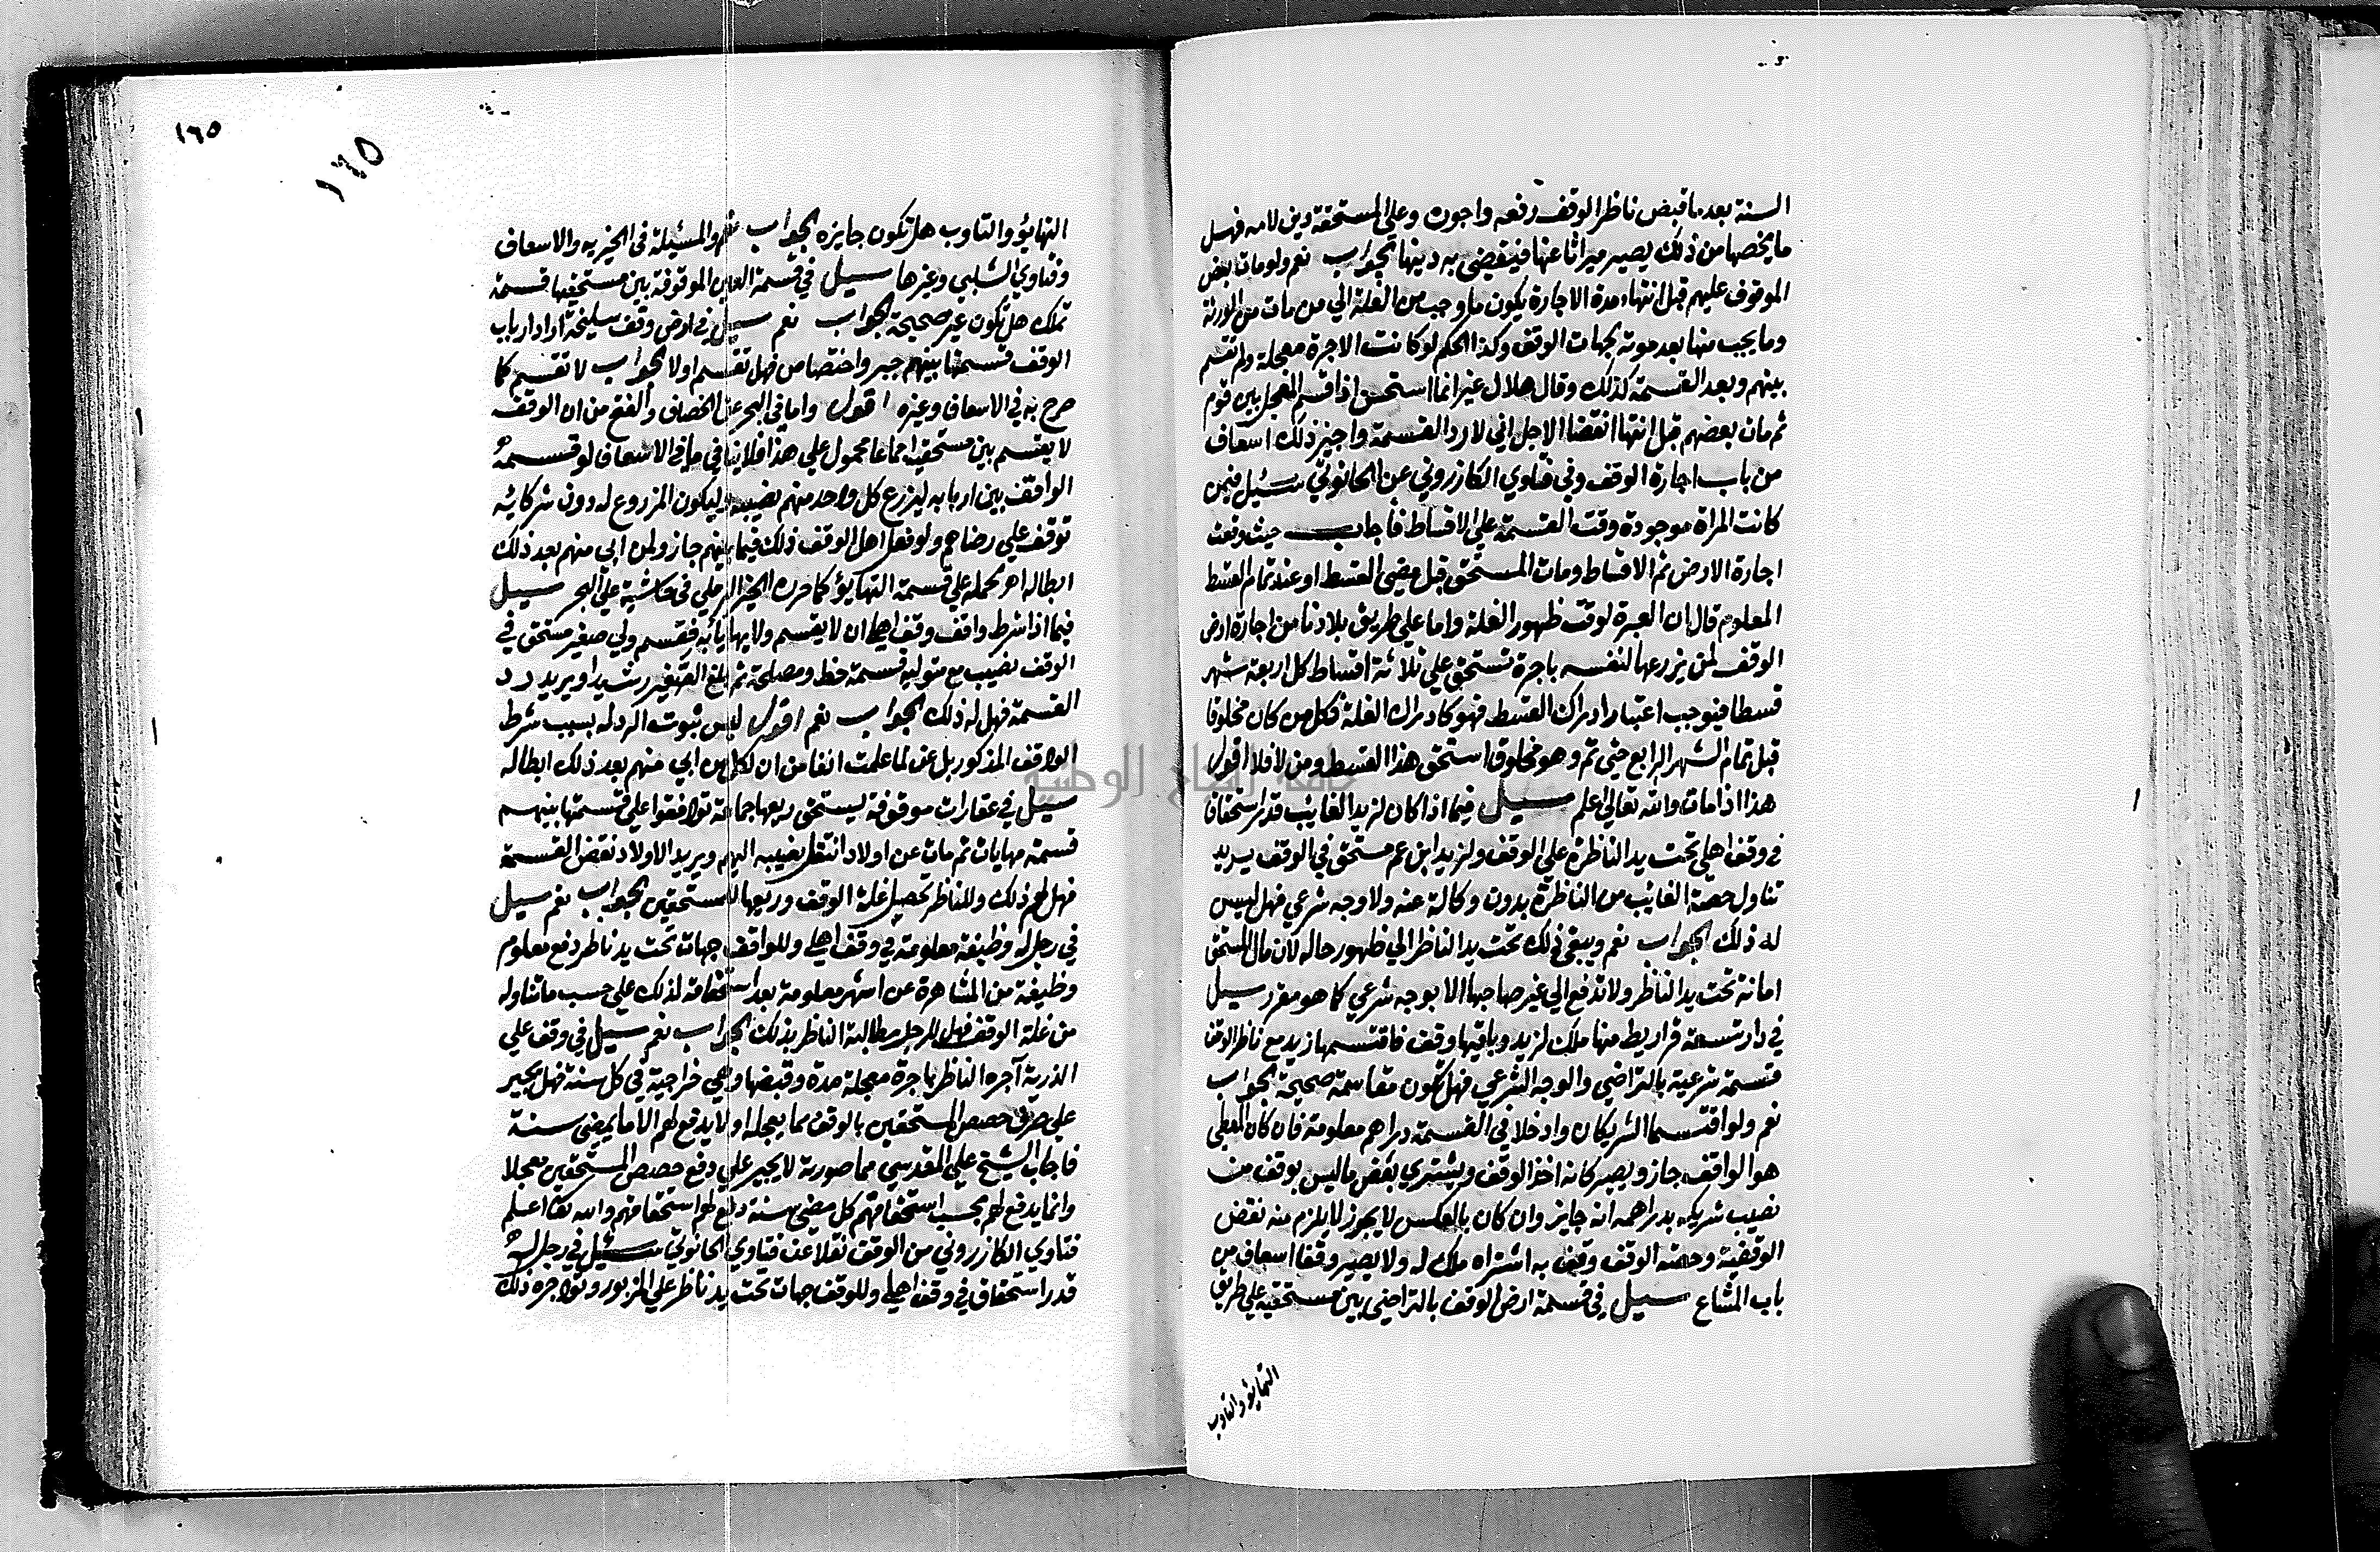 السنة بعد ما قبض ناظر الوقف رفعه واجور وعلي المستحقة دين لامه فهل
ما يخصها من ذلك يصير ميراثا عنها فيقضي به دينها الجواب نعم ولو مات بعض
الموقوف عليهم قبل انتهاء مدة الاجارة يكون ما وجب من الغلة الي من مات من الورثة
وما يجب منها بعد موته لجهات الوقف وكذا الحكم لو كانت الاجرة معجلة ولم تقسم
بينهم وبعد القسمة كذلك وقال هلال غير انما استحسن اذا قسم المعجل بين قوم
ثم مات بعضهم قبل انتها انقضا الاجل اني لا رد القسمة واجيز ذلك اسعاف
من باب اجارة الوقف وفي فتاوي الكازروني عن الحانوتي سئيل فيمن
كانت المراة موجودة وقت القسمة علي الاقساط فاجاب حيث وقعت
اجارة الارض ثم الاقساط ومات المستحق قبل مضي القسط او عند تمام القسط
المعلوم قال ان العبرة لوقت ظهور الغلة واما علي طريق بلادنا من اجارة ارض
الوقف لمن يزرعها لنفسه باجرة تستحق علي ثلاثة اقساط كل اربعة شهر
قسطا فيوجب اعتبار ادراك القسط فهو كادراك الغلة فكل من كان مخلوقا
قبل تمام الشهر الرابع حتي تم وهو مخلوق استحق هذا القسط ومن لا فلا اقول
هذا اذا مات والله تعالي اعلم سيل فيما اذا كان لزيد الغايب قدر استحقاق
في وقف اهلي تحت يد الناظرة علي الوقف ولزيد ابن عم مستحق في الوقف يريد
تناول حصة الغايب من الناظرة بدون وكالة عنه ولا وجه شرعي فهل ليس
له ذلك الجواب نعم ويبقي ذلك تحت يد الناظر الي ظهور حاله لان مال المستحق
امانة تحت يد الناظر ولا تدفع الي غير صاحبها الا بوجه شرعي كما هو مقرر سيل
في دار تسعة قراريط منها ملك لزيد وباقيها وقف فاقتسمها زيد مع ناظر الوقف
قسمة شرعية بالتراضي والوجه الشرعي فهل تكون مقاسمة صحيحة الجواب
نعم ولو اقتسما الشريكان وادخلا في القسمة دراهم معلومة فان كان المعطي
هو الواقف جاز ويصير كانه اخذ الوقف ويشتري بعض ما ليس بوقف من
نصيب شريكه بدراهمه انه جايز وان كان بالعكس لا يجوز لا يلزم منه نقض
الوقفية وحصة الوقف وقف به اشتراه ملك له ولا يصير وقفا اسعاف من
باب المشاع سيل في قسمة ارض الوقف بالتراضي بين مستحقيه علي طريق
التهايؤ والتناوب
١٦٥
١٦٥
التهايؤ والتناوب هل تكون جايزه الجواب نعم والمسئيلة في الخيريه والاسعاف
وفتاوي الشلبي وغيرها سيل في قسمة العين الموقوفة بين مستحقيها قسمة
تملك هل تكون غير صحيحة الجواب نعم سيل في ارض وقف سليخة اراد ارباب
الوقف قسمتها بينهم جبر واختصاص فهل تقسم اولا الجواب لا تقسم كما
صرح به في الاسعاف وغيره اقول واما في البحر عن الخصاف والفتح من ان الوقف
لا يقسم بين مستحقيه اجماعا محمول علي هذا فلا ينافي ما في الاسعاف لو قسمه
الواقف بين اربابه ليزرع كل واحد منهم نصيبه وليكون المزروع له دون شركائه
توقف علي رضاهم ولو فعل اهل الوقف ذلك فيما بينهم جاز ولمن ابي منهم بعد ذلك
ابطاله اهـ لحمله علي قسمة التهايؤ كما حرره الخير الرملي في حاشيته علي البحر سيل
فيما اذا شرط واقف وقف اهلي ان لا يقسم ولا يهايأ به فقسم ولي صغير مستحق في
الوقف نصيب مع متوليه قسمة حفظ ومصلحة ثم بلغ الصغير رشيدا ويريد رد
القسمة فهل له ذلك الجواب نعم اقول ليس ثبوت الرد له بسبب شرط
الواقف المذكور بل عن لما علمت انفا من ان لكل من ابي منهم بعد ذلك ابطاله
سيل في عقارات موقوفة يستحق ريعها جماعة توافقوا علي قسمتها بينهم
قسمة مهايات ثم مات عن اولاد انتقل نصيبه اليهم ويريد الاولاد نقض القسمة
فهل لهم ذلك وللناظر تحصيل غلة الوقف وريعها للمستحقين الجواب نعم سيل
في رجل له وظيفة معلومة في وقف اهلي وللواقف جهات تحت يد ناظر دفع معلوم
وظيفة من المشاهرة عن اشهر معلومة بعد استحقاقه لذلك علي حسب ما تناوله
من غلة الوقف فهل للرجل مطالبة الناظر بذلك الجواب نعم سيل في وقف علي
الذرية آجره الناظر باجرة معجلة مدة وقبضها وهي خراجية في كل سنة فهل يجبر
علي صرف حصص المستحقين بالوقف مما يعجله او لا يدفع لهم الا ما يمضي سنة
فاجاب الشيخ علي المقدسي مما صورته لا يجبر علي دفع حصص المستحقين معجلا
وانما يدفع لهم بحسب استحقاقهم كل مضي سنة دفع لهم استحقاقهم والله تعا اعلم
فتاوي الكازروني من الوقف نقلا عن فتاوي الحانوتي سئيل في رجل له
قدر استحقاق في وقف اهلي وللوقف جهات تحت يد ناظر علي المزبور وتواجره ذلك
جامعة النجاح الوطنية